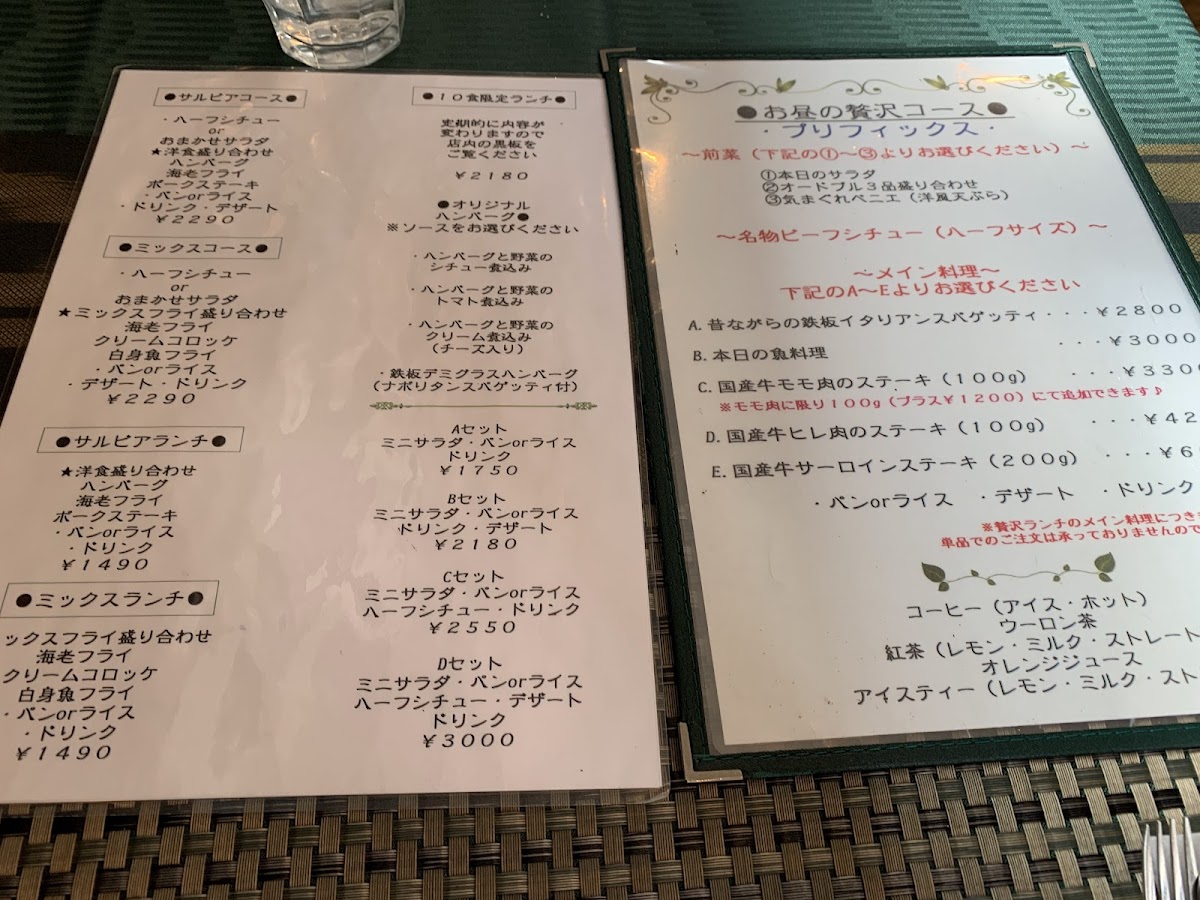 ●サルビアコース●
・ハーフシチュー
or
おまかせサラダ
★洋食盛り合わせ
ハンバーグ
海老フライ
ポークステーキ
・パンorライス
・ドリンク・デザート
￥2290
●ミックスコース●
・ハーフシチュー
or
おまかせサラダ
★ミックスフライ盛り合わせ
海老フライ
クリームコロッケ
白身魚フライ
・パンorライス
・デザート・ドリンク
￥2290
●サルビアランチ●
★洋食盛り合わせ
ハンバーグ
海老フライ
ポークステーキ
・パンorライス
・ドリンク
￥1490
●ミックスランチ●
ックスフライ盛り合わせ
海老フライ
クリームコロッケ
白身魚フライ
・パンorライス
・ドリンク
￥1490
●10食限定ランチ●
定期的に内容が
変わりますので
店内の黒板を
ご覧ください
￥2180
●オリジナル
ハンバーグ●
※ソースをお選びください
・ハンバーグと野菜の
シチュー煮込み
・ハンバーグと野菜の
トマト煮込み
・ハンバーグと野菜の
クリーム煮込み
（チーズ入り）
・鉄板デミグラスハンバーグ
（ナポリタンスパゲッティ付）
Aセット
ミニサラダ・パンorライス
ドリンク
￥1750
Bセット
ミニサラダ・パンorライス
ドリンク・デザート
￥2180
Cセット
ミニサラダ・パンorライス
ハーフシチュー・ドリンク
￥2550
Dセット
ミニサラダ・パンorライス
ハーフシチュー・デザート
ドリンク
￥3000
●お昼の贅沢コース●
・プリフィックス・
～前菜（下記の①～③よりお選びください）～
①本日のサラダ
②オードブル3品盛り合わせ
③気まぐれベニエ（洋風天ぷら）
～名物ビーフシチュー（ハーフサイズ）～
～メイン料理～
下記のA～Eよりお選びください
A.昔ながらの鉄板イタリアンスパゲッティ・・・￥2800
B.本日の魚料理 ・・・￥3000
C.国産牛モモ肉のステーキ（100g） ・・・￥3300
※モモ肉に限り100g（プラス￥1200）にて追加できます♪
D.国産牛ヒレ肉のステーキ（100g） ・・・￥42
E.国産牛サーロインステーキ（200g） ・・・￥6
・パンorライス ・デザート ・ドリンク
※贅沢ランチのメイン料理につき
単品でのご注文は承っておりませんので
コーヒー（アイス・ホット）
ウーロン茶
紅茶（レモン・ミルク・ストレート
オレンジジュース
アイスティー（レモン・ミルク・スト